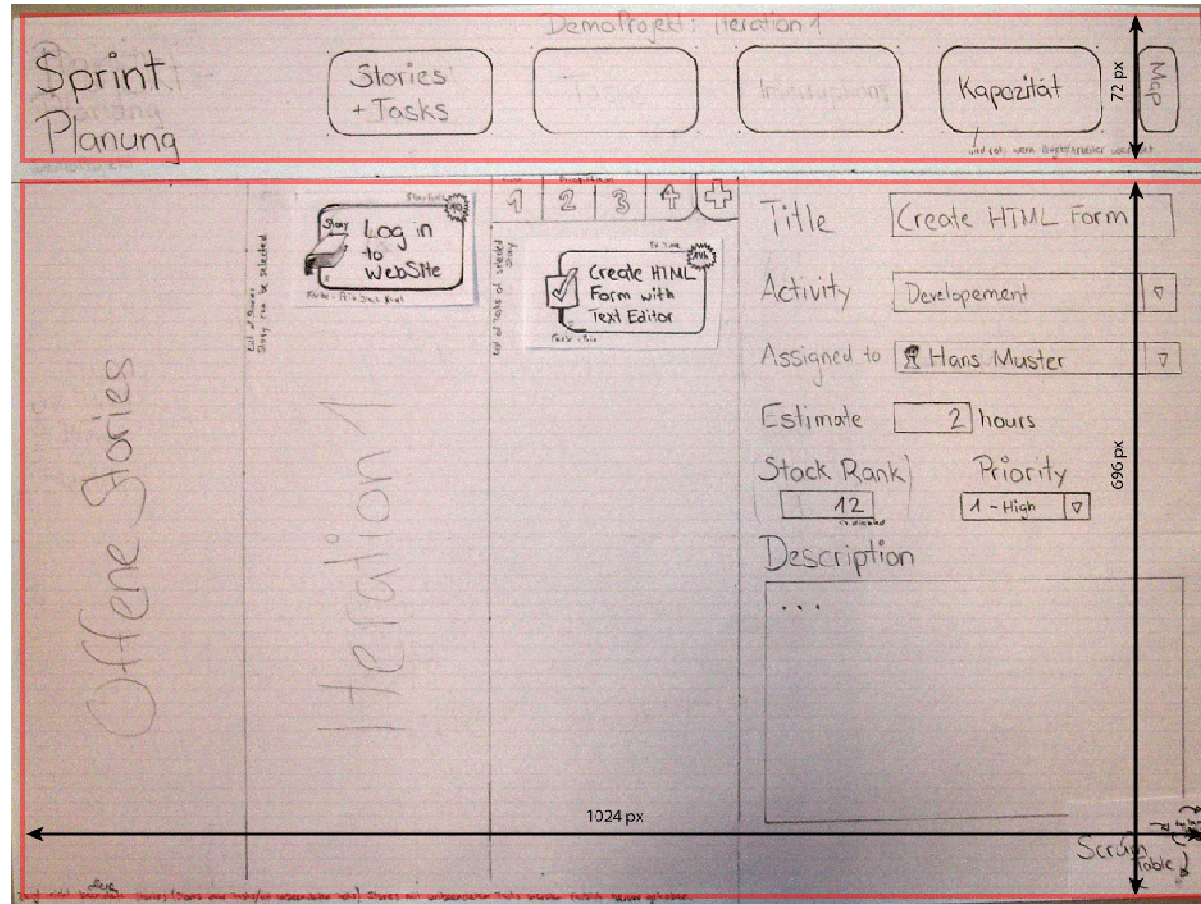 DemoProject: Iteration 1
Sprint
Planung
Stories
+ Tasks
Tasks
Interruptions
Kapazität
Map
72 px
Offene Stories
Iteration 1
List of Stories
Story can be selected
Story
Log in
to
WebSite
1 2 3 4 +
List of Tasks of selected
Story
Create HTML
Form with
Text Editor
Title
Create HTML Form
Activity
Developement
Assigned to
Hans Muster
Estimate
2 hours
Stack Rank
12
Priority
1 - High
Description
...
696 px
1024 px
Scrum
Table